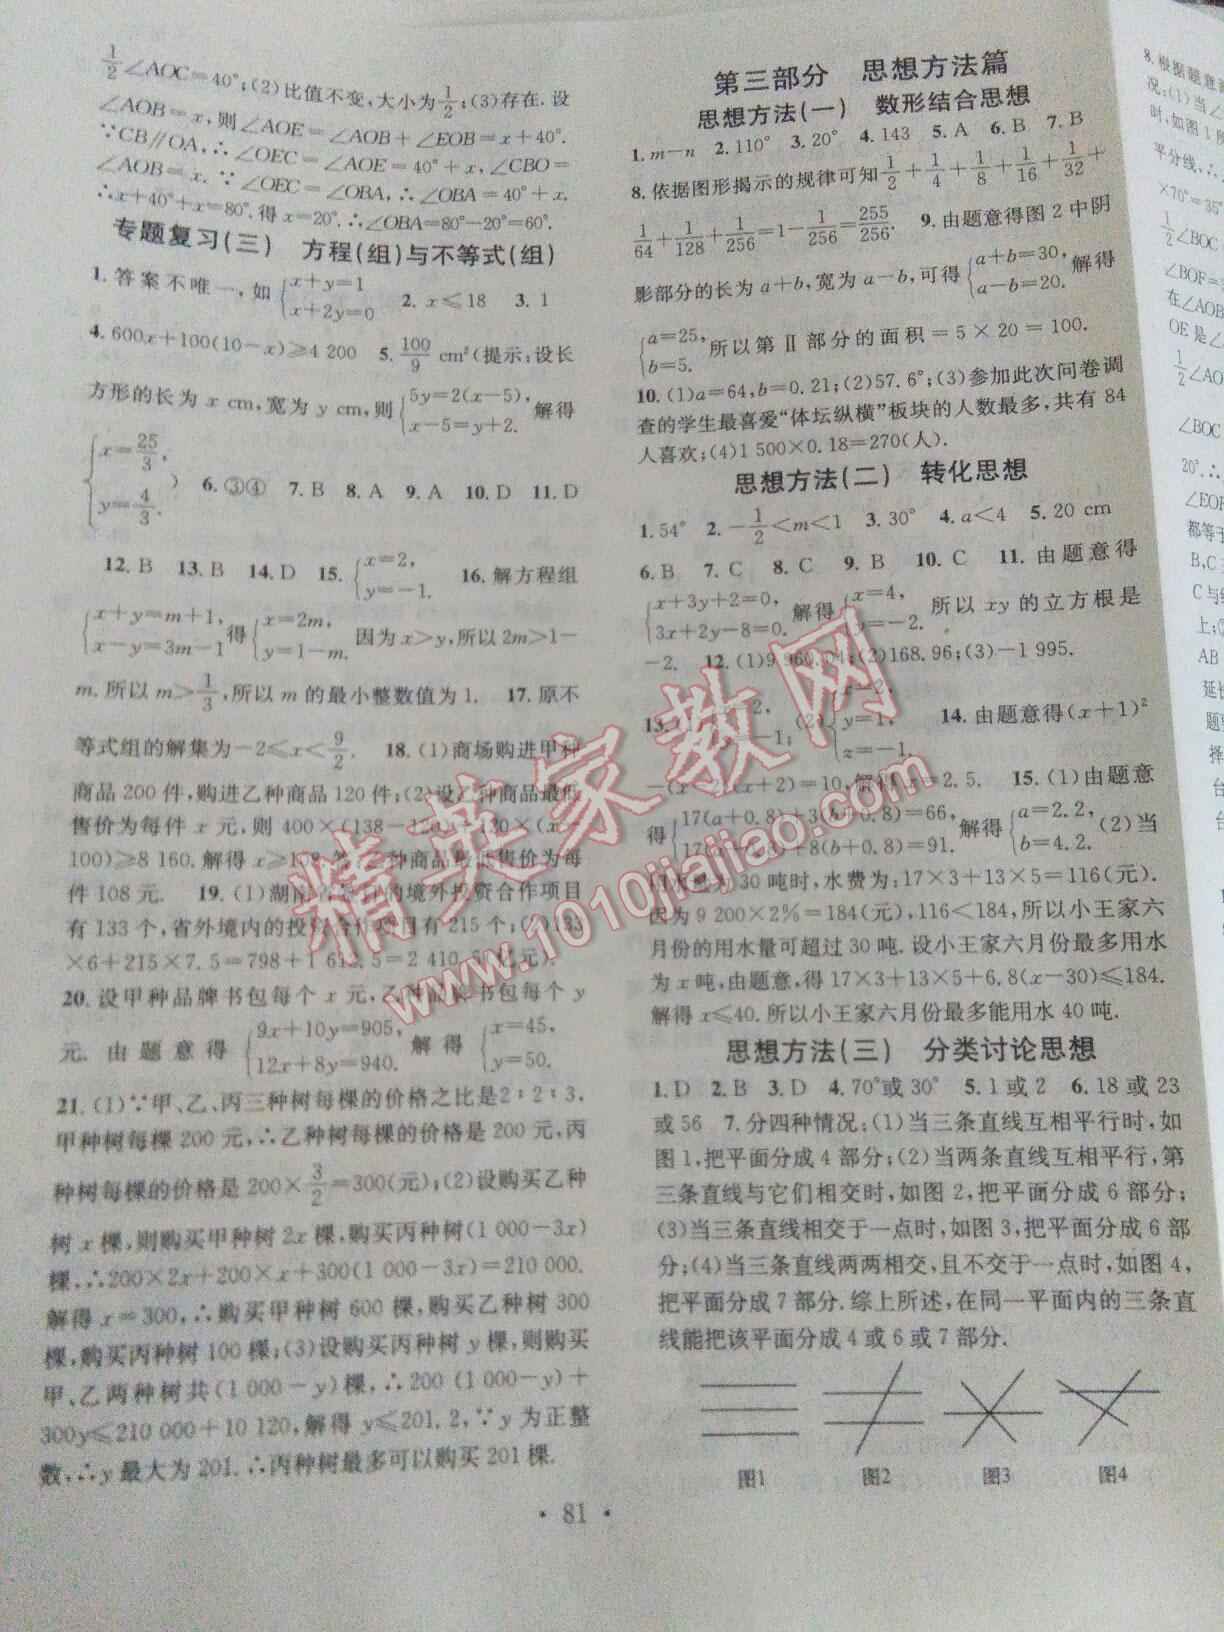 1/2∠AOC=40°;(2)比值不变,大小为1/2;(3)存在.设
∠AOB=x,则∠AOE=∠AOB+∠EOB=x+40°.
∵CB∥OA,∴∠OEC=∠AOE=40°+x,∠CBO=
∠AOB=x.∵∠OEC=∠OBA,∴∠OBA=40°+x.
∴x+40°+x=80°.得x=20°.∴∠OBA=80°-20°=60°.
专题复习(三) 方程(组)与不等式(组)
1.答案不唯一,如{x+y=1 x+2y=0 2.x≤18 3.1
4.600x+100(10-x)≥4 200 5.100/9 cm²(提示:设长
方形的长为 x cm,宽为 y cm,则{5y=2(x-5), x-5=y+2. 解得
{x=25/3, y=4/3. ) 6.③④ 7.B 8.A 9.A 10.D 11.D
12.B 13.B 14.D 15.{x=2, y=-1. 16.解方程组
{x+y=m+1, x-y=3m-1 得{x=2m, y=1-m. 因为x>y,所以2m>1-
m.所以m>1/3,所以m的最小整数值为1. 17.原不
等式组的解集为-2≤x<9/2. 18.(1)商场购进甲种
商品200件,购进乙种商品120件;(2)设乙种商品最低
售价为每件 x 元,则 400×(138-120)+120×(x-
100)≥8 160.解得x≥108.答:乙种商品最低售价为每
件108元. 19.(1)湖南省签订的境外投资合作项目
有133个,省外境内的投资合作项目有215个;(2)133
×6+215×7.5=798+1 612.5=2 410.5(亿元).
20.设甲种品牌书包每个 x 元,乙种品牌书包每个 y
元.由题意得{9x+10y=905, 12x+8y=940. 解得{x=45, y=50.
21.(1)∵甲、乙、丙三种树每棵的价格之比是2∶2∶3,
甲种树每棵200元,∴乙种树每棵的价格是200元,丙
种树每棵的价格是200×3/2=300(元);(2)设购买乙种
树x棵,则购买甲种树2x棵,购买丙种树(1 000-3x)
棵,∴200×2x+200×x+300(1 000-3x)=210 000.
解得x=300,∴购买甲种树600棵,购买乙种树300
棵,购买丙种树100棵;(3)设购买丙种树y棵,则购买
甲、乙两种树共(1 000-y)棵,∴200(1 000-y)+
300y≤210 000+10 120,解得 y≤201.2,∵y为正整
数,∴y最大为201.∴丙种树最多可以购买201棵.
第三部分 思想方法篇
思想方法(一) 数形结合思想
1.m-n 2.110° 3.20° 4.143 5.A 6.B 7.B
8.依据图形揭示的规律可知1/2+1/4+1/8+1/16+1/32+
1/64+1/128+1/256=1-1/256=255/256. 9.由题意得图2中阴
影部分的长为a+b,宽为a-b,可得{a+b=30, a-b=20. 解得
{a=25, b=5. 所以第Ⅱ部分的面积=5×20=100.
10.(1)a=64,b=0.21;(2)57.6°;(3)参加此次问卷调
查的学生最喜爱“体坛纵横”板块的人数最多,共有84
人喜欢;(4)1 500×0.18=270(人).
思想方法(二) 转化思想
1.54° 2.-1/2<m<1 3.30° 4.a<4 5.20 cm
6.B 7.C 8.C 9.B 10.C 11.由题意得
{x+3y+2=0, 3x+2y-8=0. 解得{x=4, y=-2. 所以xy的立方根是
-2. 12.(1)9 960.04;(2)168.96;(3)-1 995.
13. (2){x=2, y=1, z=-1. 14.由题意得(x+1)²
-(x-2)(x+2)=10,解得x=2.5. 15.(1)由题意
得{17(a+0.8)+3(b+0.8)=66, 17(a+0.8)+8(b+0.8)=91. 解得{a=2.2, b=4.2. (2)当
用水量为30吨时,水费为:17×3+13×5=116(元).
因为9 200×2%=184(元),116<184,所以小王家六
月份的用水量可超过30吨.设小王家六月份最多用水
为x吨,由题意,得17×3+13×5+6.8(x-30)≤184.
解得x≤40.所以小王家六月份最多能用水40吨.
思想方法(三) 分类讨论思想
1.D 2.B 3.D 4.70°或30° 5.1或2 6.18或23
或56 7.分四种情况:(1)当三条直线互相平行时,如
图1,把平面分成4部分;(2)当两条直线互相平行,第
三条直线与它们相交时,如图2,把平面分成6部分;
(3)当三条直线相交于一点时,如图3,把平面分成6部
分;(4)当三条直线两两相交,且不交于一点时,如图4,
把平面分成7部分.综上所述,在同一平面内的三条直
线能把该平面分成4或6或7部分.
图1 图2 图3 图4
· 81 ·
8.根据题意
况:(1)当∠
时,如图1
平分线,∴
×70°=35°
1/2∠BOC
∠BOF=
在∠AOB
OE是∠
1/2∠AO
∠BOC
20°.∴
∠EOF
都等于
B,C
C与
上;
AB
延长
题
择
台
台
精英家教网
www.1010jiajiao.com